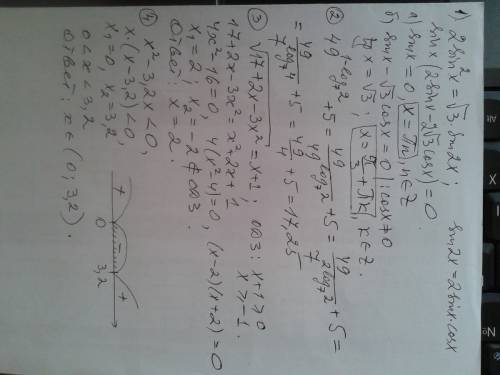 1) 2sin²x = √3 sin2x;      sin2x = 2sinx·cosx
sinx(2sinx - 2√3cosx) = 0
а) sinx = 0, x = πn, n∈Z
б) sinx - √3cosx = 0 |: cosx ≠ 0
tgx = √3; x = π/3 + πk, k∈Z.
② 49^(1-log₇2) + 5 = 49/49^(log₇2) + 5 = 49/7^(2log₇2) + 5 =
= 49/7^(log₇4) + 5 = 49/4 + 5 = 17,25
③ √(17+2x-3x²) = x+1; ОДЗ: x+1≥0
x ≥ -1.
17+2x-3x² = x²+2x+1
4x²-16=0, 4(x²-4)=0, (x-2)(x+2)=0
x₁=2; x₂=-2 ∉ ОДЗ.
Ответ: x=2.
④ x²-3,2x<0,
x·(x-3,2)<0,
x₁=0, x₂=3,2,
0<x<3,2
+ - +
0 3,2
Ответ: x∈(0; 3,2).